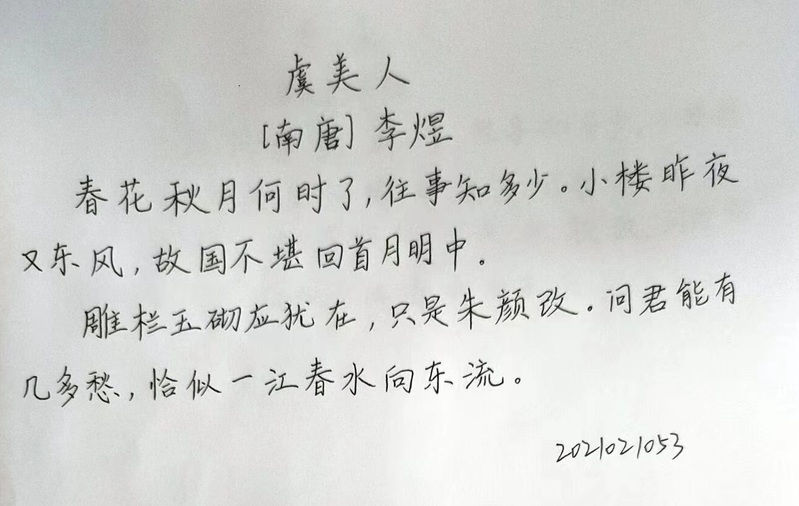 虞美人
[南唐] 李煜
春花秋月何时了,往事知多少。小楼昨夜
又东风,故国不堪回首月明中。
雕栏玉砌应犹在,只是朱颜改。问君能有
几多愁,恰似一江春水向东流。
2021021053